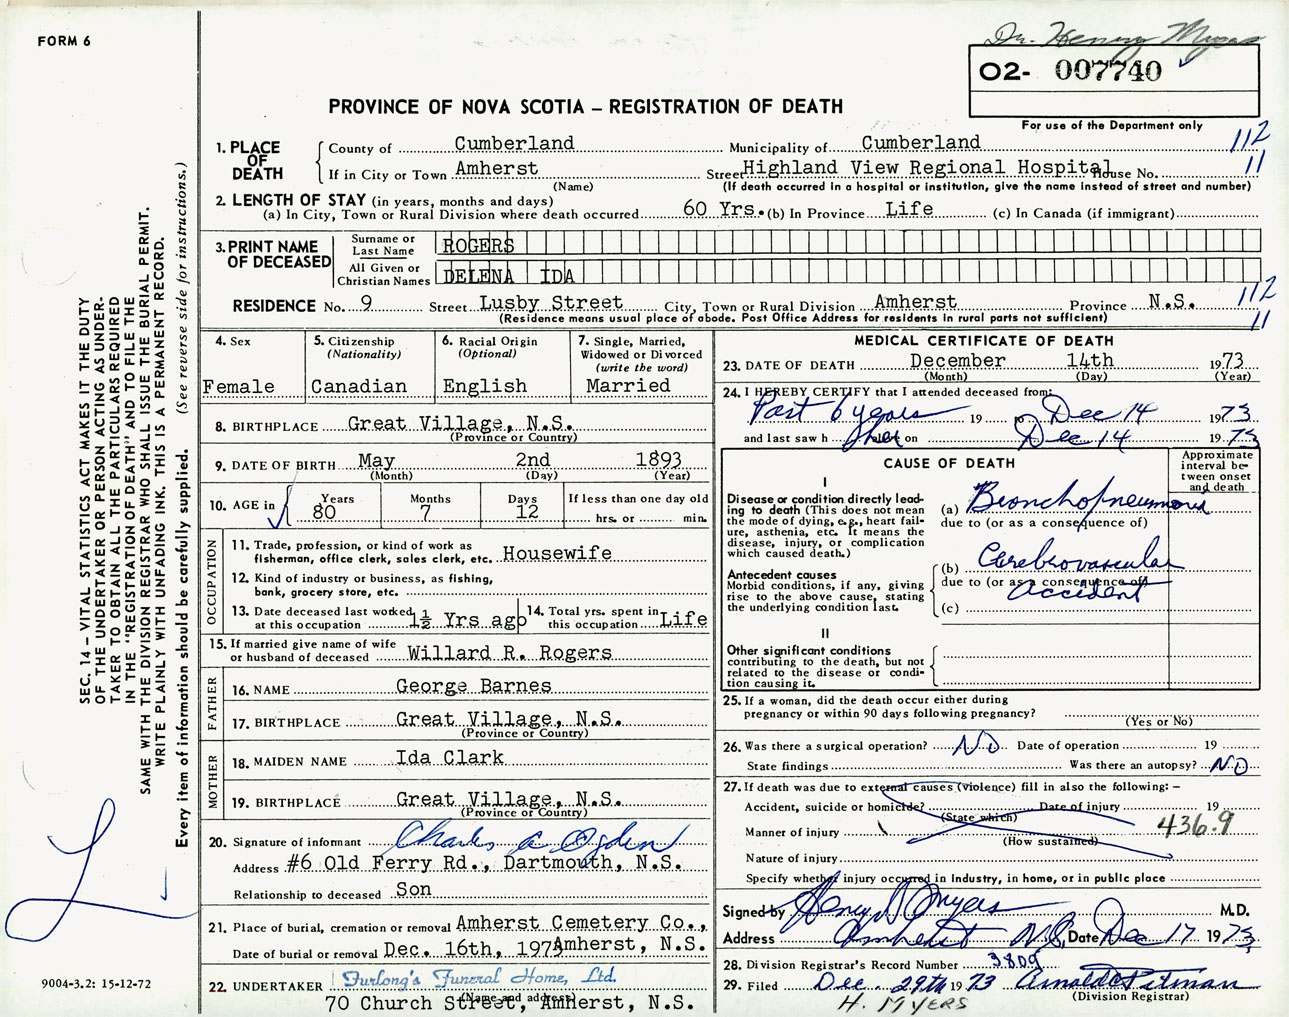 FORM 6
Dr. Henry Myers
O2- 007740
For use of the Department only
PROVINCE OF NOVA SCOTIA – REGISTRATION OF DEATH
1. PLACE OF DEATH
County of Cumberland Municipality of Cumberland 112
If in City or Town Amherst Street Highland View Regional Hospital House No. 11
(Name) (If death occurred in a hospital or institution, give the name instead of street and number)
2. LENGTH OF STAY (in years, months and days)
(a) In City, Town or Rural Division where death occurred 60 Yrs. (b) In Province Life (c) In Canada (if immigrant)
3. PRINT NAME OF DECEASED
Surname or Last Name ROGERS
All Given or Christian Names DELENA IDA
RESIDENCE No. 9 Street Lusby Street City, Town or Rural Division Amherst Province N.S. 112
(Residence means usual place of abode. Post Office Address for residents in rural parts not sufficient) 11
4. Sex
Female
5. Citizenship
(Nationality)
Canadian
6. Racial Origin
(Optional)
English
7. Single, Married,
Widowed or Divorced
(write the word)
Married
8. BIRTHPLACE Great Village, N.S.
(Province or Country)
9. DATE OF BIRTH May 2nd 1893
(Month) (Day) (Year)
10. AGE in Years Months Days If less than one day old
80 7 12 hrs. or min.
OCCUPATION
11. Trade, profession, or kind of work as
fisherman, office clerk, sales clerk, etc. Housewife
12. Kind of industry or business, as fishing,
bank, grocery store, etc.
13. Date deceased last worked
at this occupation 1½ Yrs ago
14. Total yrs. spent in
this occupation Life
15. If married give name of wife
or husband of deceased Willard R. Rogers
FATHER
16. NAME George Barnes
17. BIRTHPLACE Great Village, N.S.
(Province or Country)
MOTHER
18. MAIDEN NAME Ida Clark
19. BIRTHPLACE Great Village, N.S.
(Province or Country)
20. Signature of informant Charles A. Ogden
Address #6 Old Ferry Rd., Dartmouth, N.S.
Relationship to deceased Son
21. Place of burial, cremation or removal Amherst Cemetery Co.,
Date of burial or removal Dec. 16th, 1973 Amherst, N.S.
22. UNDERTAKER Furlong's Funeral Home, Ltd.
(Name and address)
70 Church Street, Amherst, N.S.
MEDICAL CERTIFICATE OF DEATH
23. DATE OF DEATH December 14th 1973
(Month) (Day) (Year)
24. I HEREBY CERTIFY that I attended deceased from:
Past 6 years 19 to Dec 14 1973
and last saw her alive on Dec 14 1973
CAUSE OF DEATH
Approximate
interval be-
tween onset
and death
I
Disease or condition directly lead-
ing to death (This does not mean
the mode of dying, e.g., heart fail-
ure, asthenia, etc. It means the
disease, injury, or complication
which caused death.)
(a) Bronchopneumonia
due to (or as a consequence of)
Antecedent causes
Morbid conditions, if any, giving
rise to the above cause, stating
the underlying condition last.
(b) Cerebrovascular
due to (or as a consequence of)
Accident
(c)
II
Other significant conditions
contributing to the death, but not
related to the disease or condi-
tion causing it.
25. If a woman, did the death occur either during
pregnancy or within 90 days following pregnancy?
(Yes or No)
26. Was there a surgical operation? NO Date of operation 19
State findings Was there an autopsy? NO
27. If death was due to external causes (violence) fill in also the following: –
Accident, suicide or homicide? Date of injury 19
(State which)
Manner of injury 436.9
(How sustained)
Nature of injury
Specify whether injury occurred in industry, in home, or in public place
Signed by Henry D Myers M.D.
Address Amherst N.S. Date Dec 17 1973
28. Division Registrar's Record Number 3809
29. Filed Dec. 29th 1973 Arnold E Pitman
(Division Registrar)
H. MYERS
SEC. 14 – VITAL STATISTICS ACT MAKES IT THE DUTY
OF THE UNDERTAKER OR PERSON ACTING AS UNDER-
TAKER TO OBTAIN ALL THE PARTICULARS REQUIRED
IN THE "REGISTRATION OF DEATH" AND TO FILE THE
SAME WITH THE DIVISION REGISTRAR WHO SHALL ISSUE THE BURIAL PERMIT.
WRITE PLAINLY WITH UNFADING INK. THIS IS A PERMANENT RECORD.
Every item of information should be carefully supplied. (See reverse side for instructions.)
9004-3.2: 15-12-72